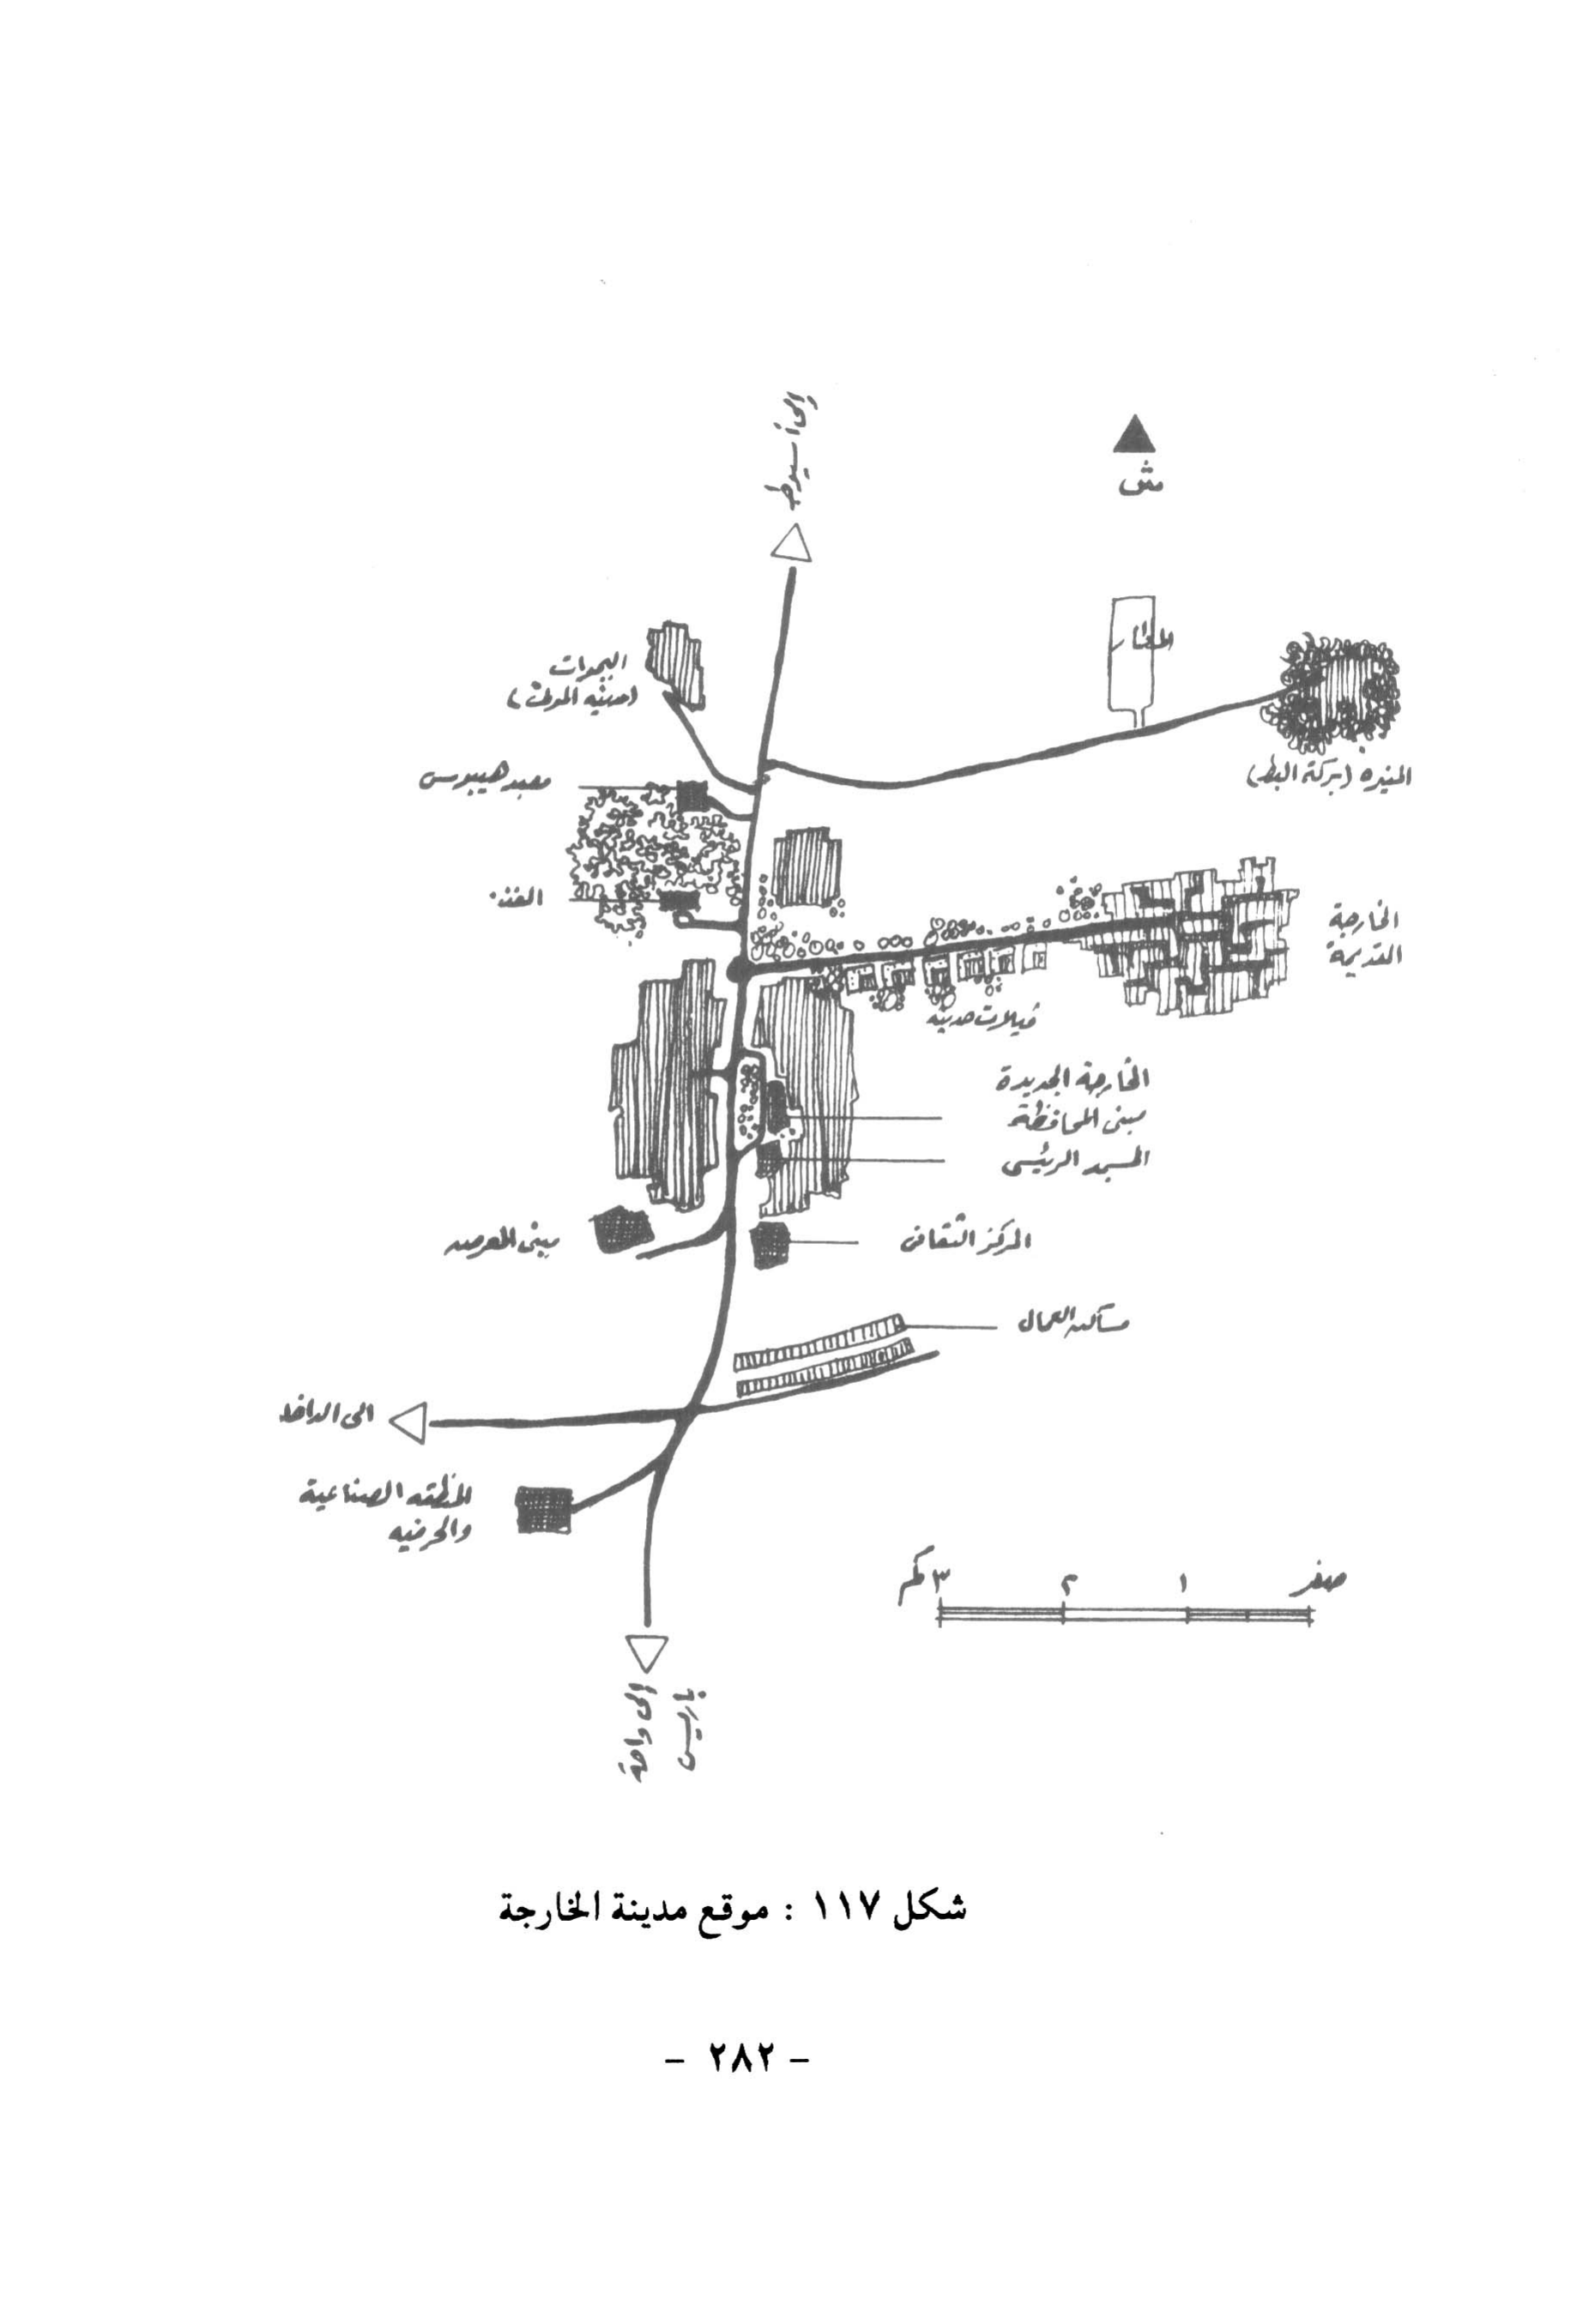 إلى أسيوط
ش
المطار
البجوات
(مدينة الموتى)
معبد هيبوس
المنيرة (بركة البط)
الفندق
الخارجة
القديمة
فيلات حديثه
الخارجه الجديدة
مبنى المحافظة
المسجد الرئيسى
مبنى المعرض
المركز الثقافى
مساكن العمال
الى الداخلة
المنطقه الصناعية
والحرفيه
صفر ١ ٢ ٣ كم
إلى واحة
باريس
شكل ١١٧ : موقع مدينة الخارجة
- ٢٨٢ -